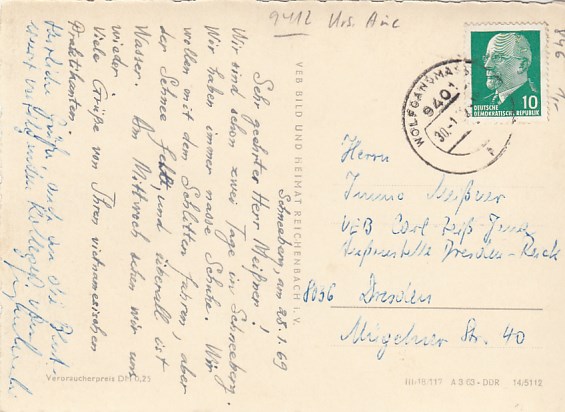 9412
VEB BILD UND HEIMAT REICHENBACH i. V.
Schneeberg, am 28.1.69
Sehr geehrter Herr Meißner!
Wir sind schon zwei Tage in Schneeberg.
Wir haben immer nasse Schuhe. Wir
wollen mit dem Schlitten fahren, aber
der Schnee fehlt und überall ist
Wasser. Am Mittwoch sehen wir uns
wieder.
Viele Grüße von Ihren vietnamesischen
Praktikanten.
Herzliche Grüße auch an die
WOLFGANGMA
9401
30.-1
DEUTSCHE
DEMOKRATISCHE REPUBLIK
10
896
1,-
Herrn
Immo Meißner
VEB Carl Zeiß Jena
Außenstelle Dresden-Reick
8036 Dresden
Mügelner Str. 40
Verbraucherpreis DM 0,25
III/18/117 A 3 03 - DDR 14/5112